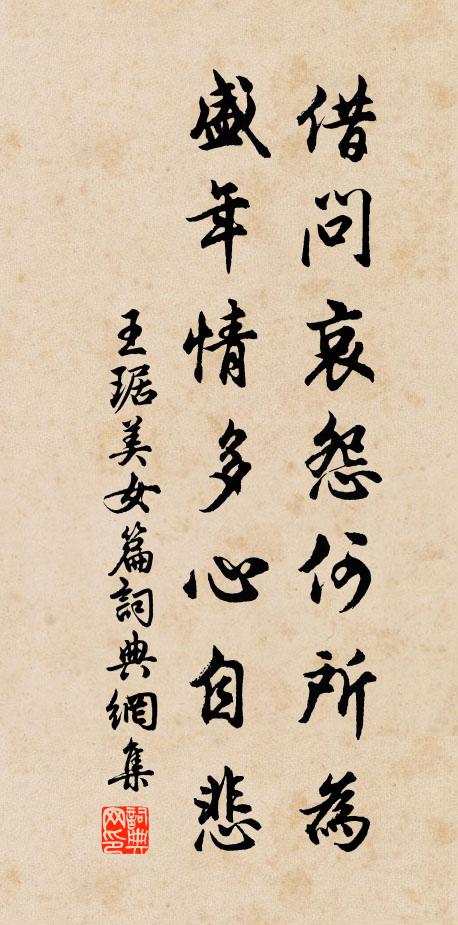 借問哀怨何所為
盛年情多心自悲
王琚美女篇詞典網集
詞典網印